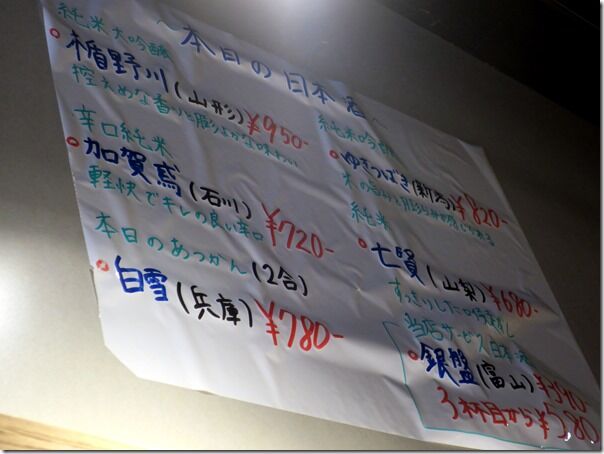 〜本日の日本酒〜
純米大吟醸
楯野川(山形)¥950-
控えめな香りと膨よかな味わい
辛口純米
加賀鳶(石川)¥720-
軽快でキレの良い辛口
本日のあつかん(2合)
白雪(兵庫)¥780-
純米吟醸
ゆきつばき(新潟)¥820-
米の旨味と
純米
七賢(山梨)¥680-
すっきりした
当店サービス日本酒
銀盤(富山)¥390-
3杯目から¥580